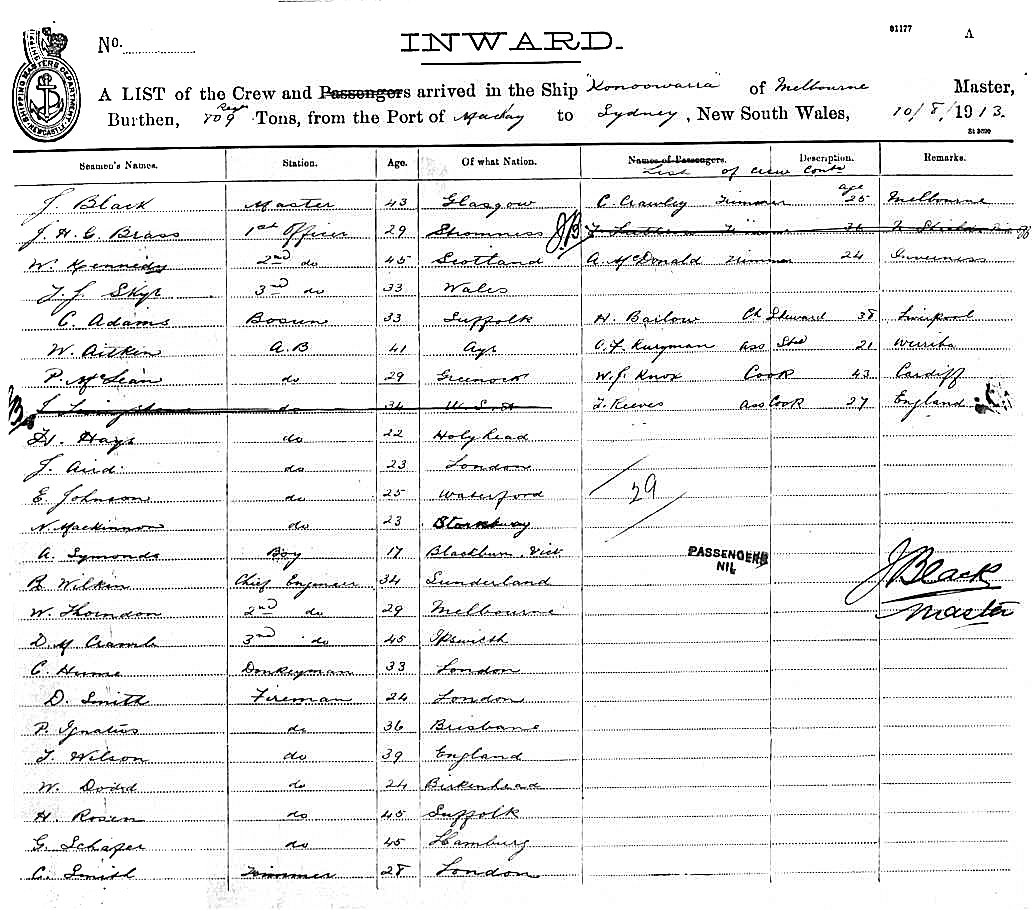 No. INWARD. 01177 A
A LIST of the Crew and Passengers arrived in the Ship "Konoowarra" of Melbourne Master,
Burthen, 809 Regr Tons, from the Port of Mackay to Sydney, New South Wales, 10/8/1913.
Seamen's Names. Station. Age. Of what Nation. Names of Passengers. Description. Remarks.
List of crew contd age
J. Black Master 43 Glasgow C. Crawley Trimmer 25 Melbourne
J. H. C. Brass 1st Officer 29 Stromness JB 36
W. Kennedy 2nd do 45 Scotland A. McDonald Trimmer 24 Inverness
T. J. Skyr 3rd do 33 Wales
C. Adams Bosun 33 Suffolk H. Bailow Ch Steward 38 Liverpool
W. Aitkin A.B 41 Ayr C. F. Kurgman ass Std 21 Werriba
P. McLean do 29 Greenock W. J. Knox Cook 43 Cardiff
JB do 34 U.S.A T. Reeves ass Cook 27 England
H. Hays do 22 Holyhead
J. Aird do 23 London
E. Johnson do 25 Waterford 29
N. Mackinnon do 23 Stornoway
A. Symonds Boy 17 Blackburn, Vict PASSENGERS
NIL
B. Wilkin Chief Engineer 34 Sunderland J Black
W. Thorndon 2nd do 29 Melbourne Master
D. M. Cramb 3rd do 45 Ipswich
C. Hume Donkeyman 33 London
D. Smith Fireman 24 London
P. Ignatius do 36 Brisbane
T. Wilson do 39 England
W. Dodd do 24 Birkenhead
H. Rosen do 45 Suffolk
G. Schafer do 45 Hamburg
C. Smith Trimmer 28 London